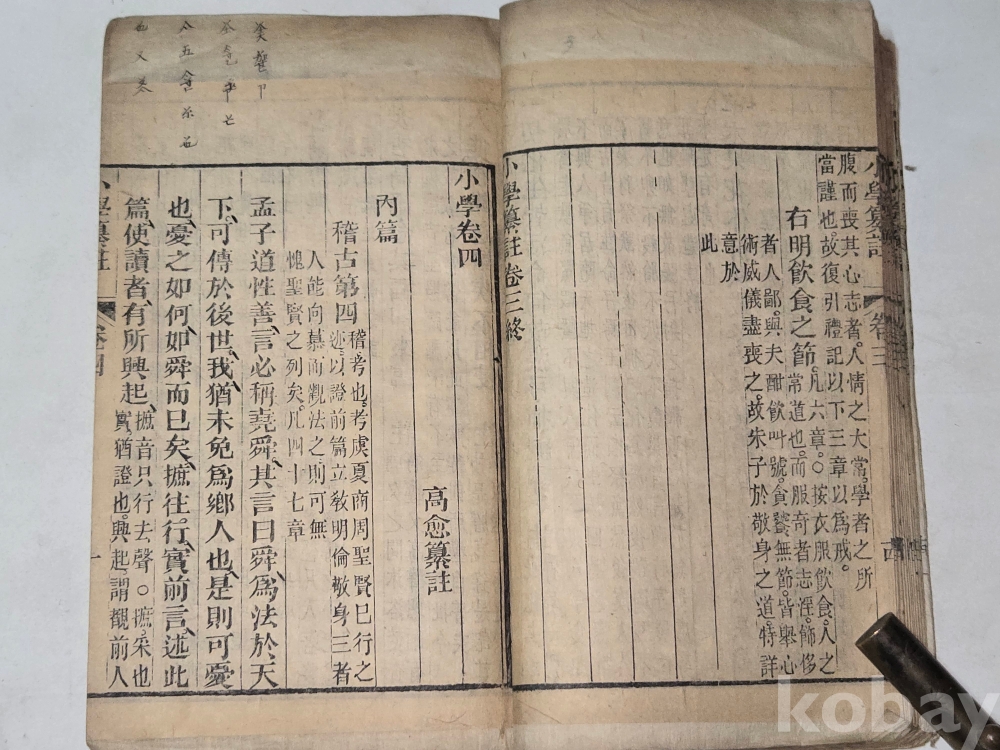 小學纂註 卷三
腹而喪其心志者人情之大常學者之所
當謹也故復引禮記以下三章以爲戒
右明飲食之節 凡六章○按衣服飲食人之
常道也而服奇者志淫飾侈
者人鄙與夫酣飲叫號食饕無節皆舉心
術威儀盡喪之故朱子於敬身之道特詳
意於
此
小學纂註卷三終
小學卷四
高愈纂註
內篇
稽古第四 稽考也考虞夏商周聖賢已行之
迹以證前篇立教明倫敬身三者
人能向慕而觀法之則可無
愧聖賢之列矣凡四十七章
孟子道性善言必稱堯舜其言曰舜爲法於天
下可傳於後世我猶未免爲鄉人也是則可憂
也憂之如何如舜而已矣摭往行實前言述此
篇使讀者有所興起 摭音只行去聲○摭采也
實猶證也興起謂覩前人
小學纂註 卷四 一
kobay